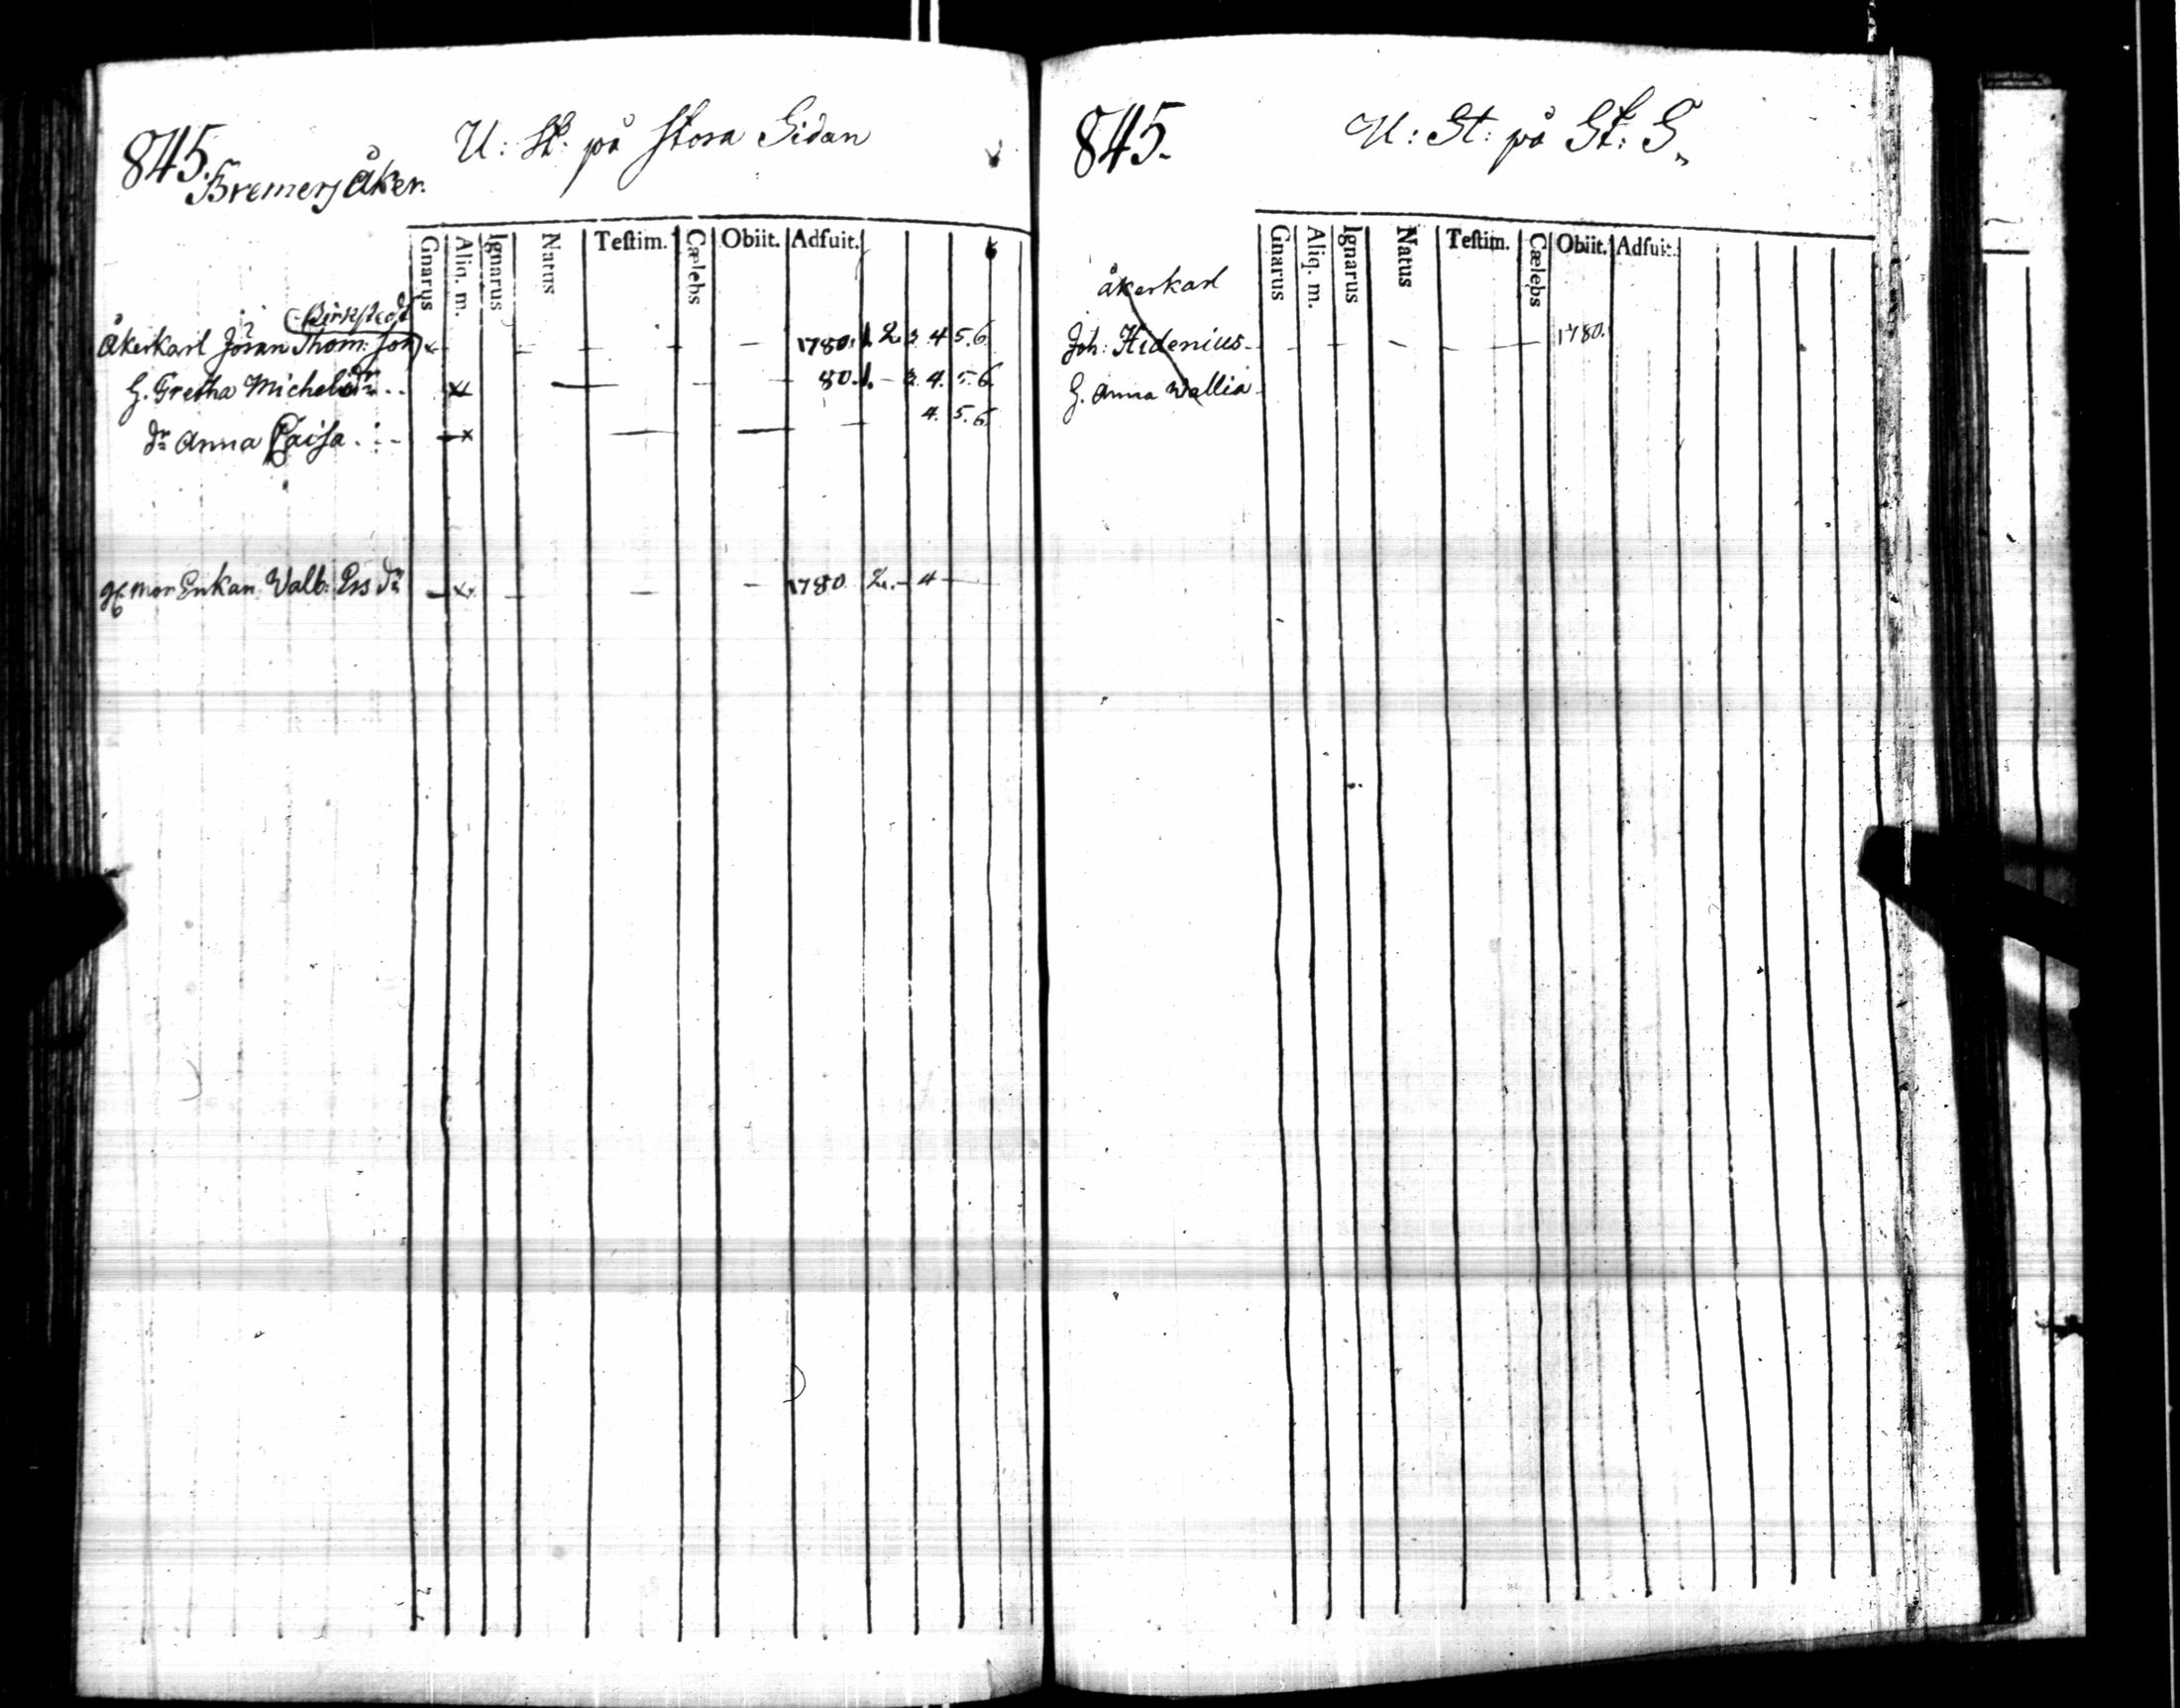 845. U: St: på Stora Sidan
Bremers åker.
Gnarus Aliq. m. Ignarus Natus Testim. Cælebs Obiit. Adfuit.
Birkstedt
Åkerkarl Jöran Thom: Son 1780. 1. 2. 3. 4. 5. 6.
G. Gretha Michelsdr 80. 1. - 3. 4. 5. 6.
dr Anna Caisa 4. 5. 6.
mor Enkan Valb: Ersdr 1780. 2. - 4
845. U: St: på St: S.
Gnarus Aliq. m. Ignarus Natus Testim. Cælebs Obiit. Adfuit.
åkerkarl
Joh: Hidenius 1780.
G. Anna Wallia